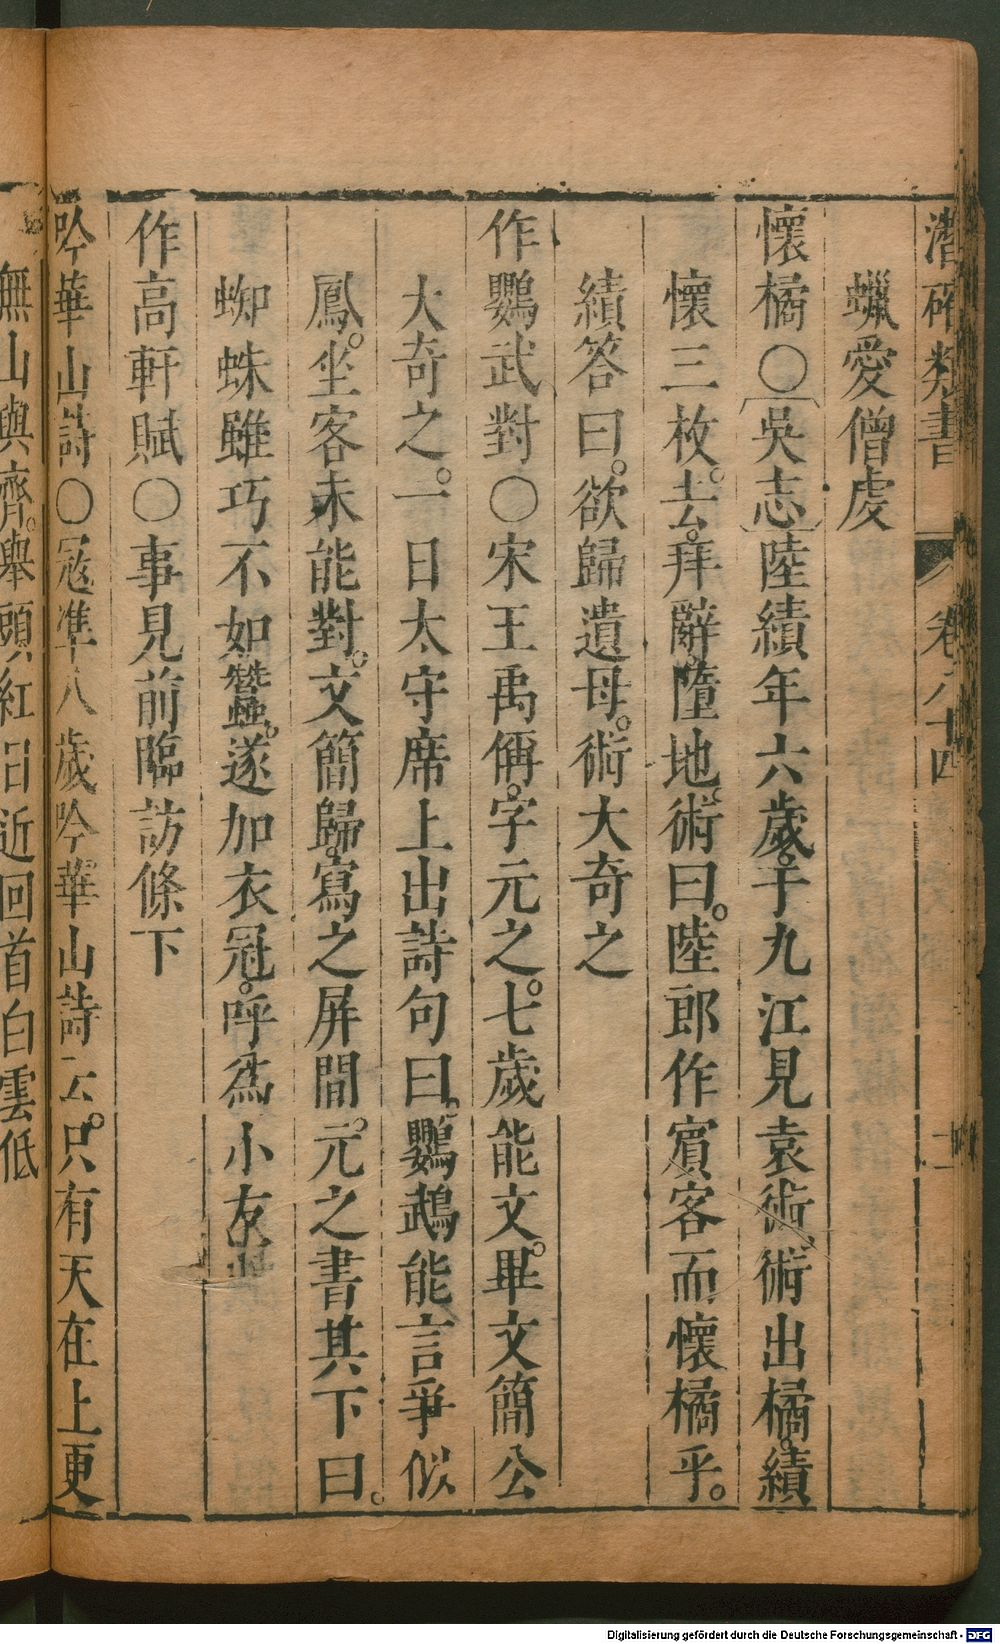 潛確類書 卷八十四
蠟愛僧虔
懷橘〇吳志陸績年六歲于九江見袁術術出橘績
懷三枚去拜辭墮地術曰陸郎作賓客而懷橘乎
績答曰欲歸遺母術大奇之
作鸚武對〇宋王禹偁字元之七歲能文畢文簡公
大奇之一日太守席上出詩句曰鸚鵡能言爭似
鳳坐客未能對文簡歸寫之屏間元之書其下曰
蜘蛛雖巧不如蠶遂加衣冠呼為小友
作高軒賦〇事見前臨訪條下
吟華山詩〇冦準八歲吟華山詩云只有天在上更
無山與齊舉頭紅日近回首白雲低
Digitalisierung gefördert durch die Deutsche Forschungsgemeinschaft - DFG